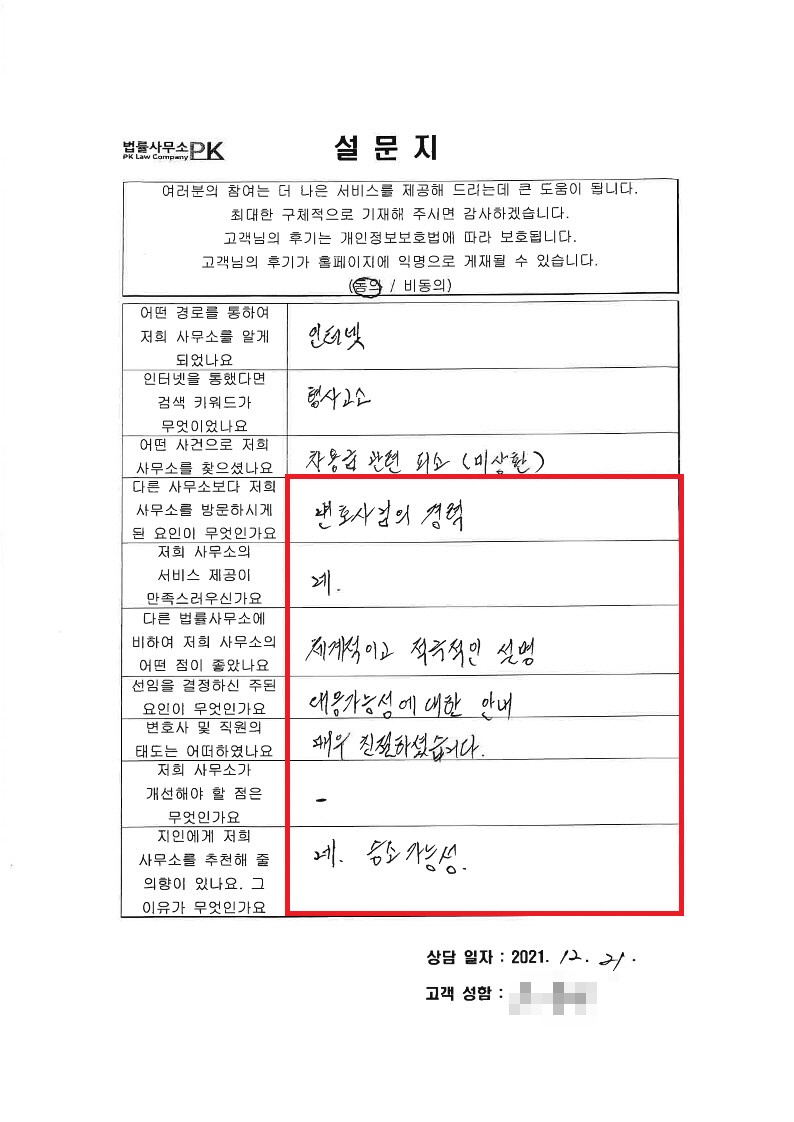 법률사무소 PK
PK Law Company
설문지
여러분의 참여는 더 나은 서비스를 제공해 드리는데 큰 도움이 됩니다.
최대한 구체적으로 기재해 주시면 감사하겠습니다.
고객님의 후기는 개인정보보호법에 따라 보호됩니다.
고객님의 후기가 홈페이지에 익명으로 게재될 수 있습니다.
(동의 / 비동의)
어떤 경로를 통하여
저희 사무소를 알게
되었나요
인터넷
인터넷을 통했다면
검색 키워드가
무엇이었나요
형사고소
어떤 사건으로 저희
사무소를 찾으셨나요
차용금 관련 피소 (미상환)
다른 사무소보다 저희
사무소를 방문하시게
된 요인이 무엇인가요
변호사님의 경력
저희 사무소의
서비스 제공이
만족스러우신가요
네.
다른 법률사무소에
비하여 저희 사무소의
어떤 점이 좋았나요
체계적이고 적극적인 설명
선임을 결정하신 주된
요인이 무엇인가요
대응가능성에 대한 안내
변호사 및 직원의
태도는 어떠하였나요
매우 친절하셨습니다.
저희 사무소가
개선해야 할 점은
무엇인가요
-
지인에게 저희
사무소를 추천해 줄
의향이 있나요. 그
이유가 무엇인가요
네. 승소가능성.
상담 일자 : 2021. 12. 21.
고객 성함 :